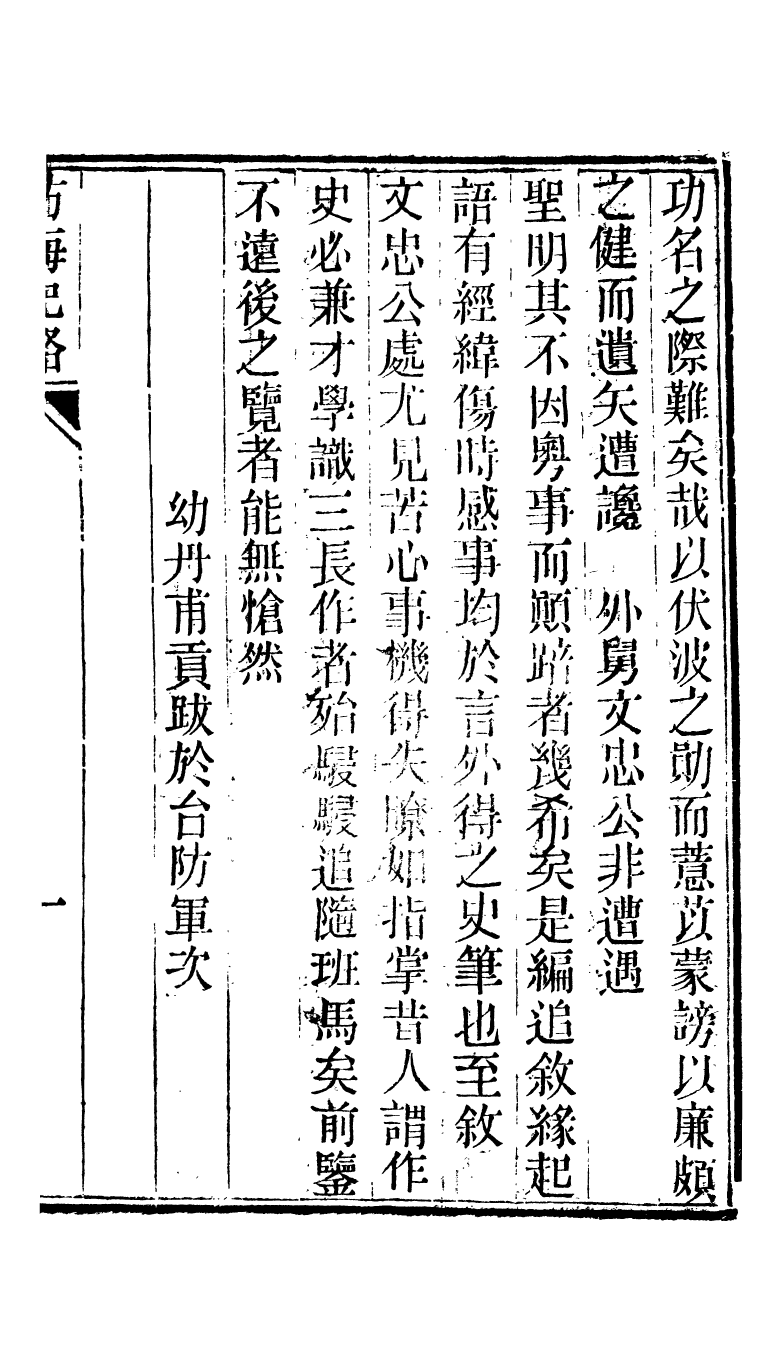 功名之際難矣哉以伏波之勛而薏苡蒙謗以廉頗
之健而遺矢遭讒　外舅文忠公非遭遇
聖明其不因粵事而顛踣者幾希矣是編追敘緣起
語有經緯傷時感事均於言外得之史筆也至敘
文忠公處尤見苦心事機得失瞭如指掌昔人謂作
史必兼才學識三長作者殆駸駸追隨班馬矣前鑒
不遠後之覽者能無愴然
幼丹甫貢跋於台防軍次
防海紀略
一